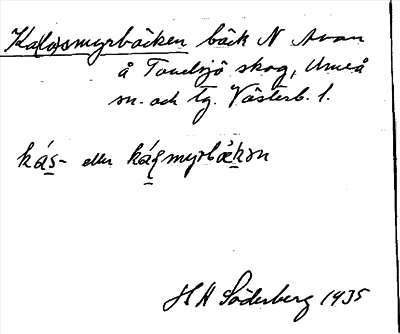 Ka(lo)smyrbäcken bäck N Avan
å Tavelsjö skog, Umeå
sn. och tg. Västerb. l.
kás- eller káʂmyrbä̀kən
H H Söderberg 1935